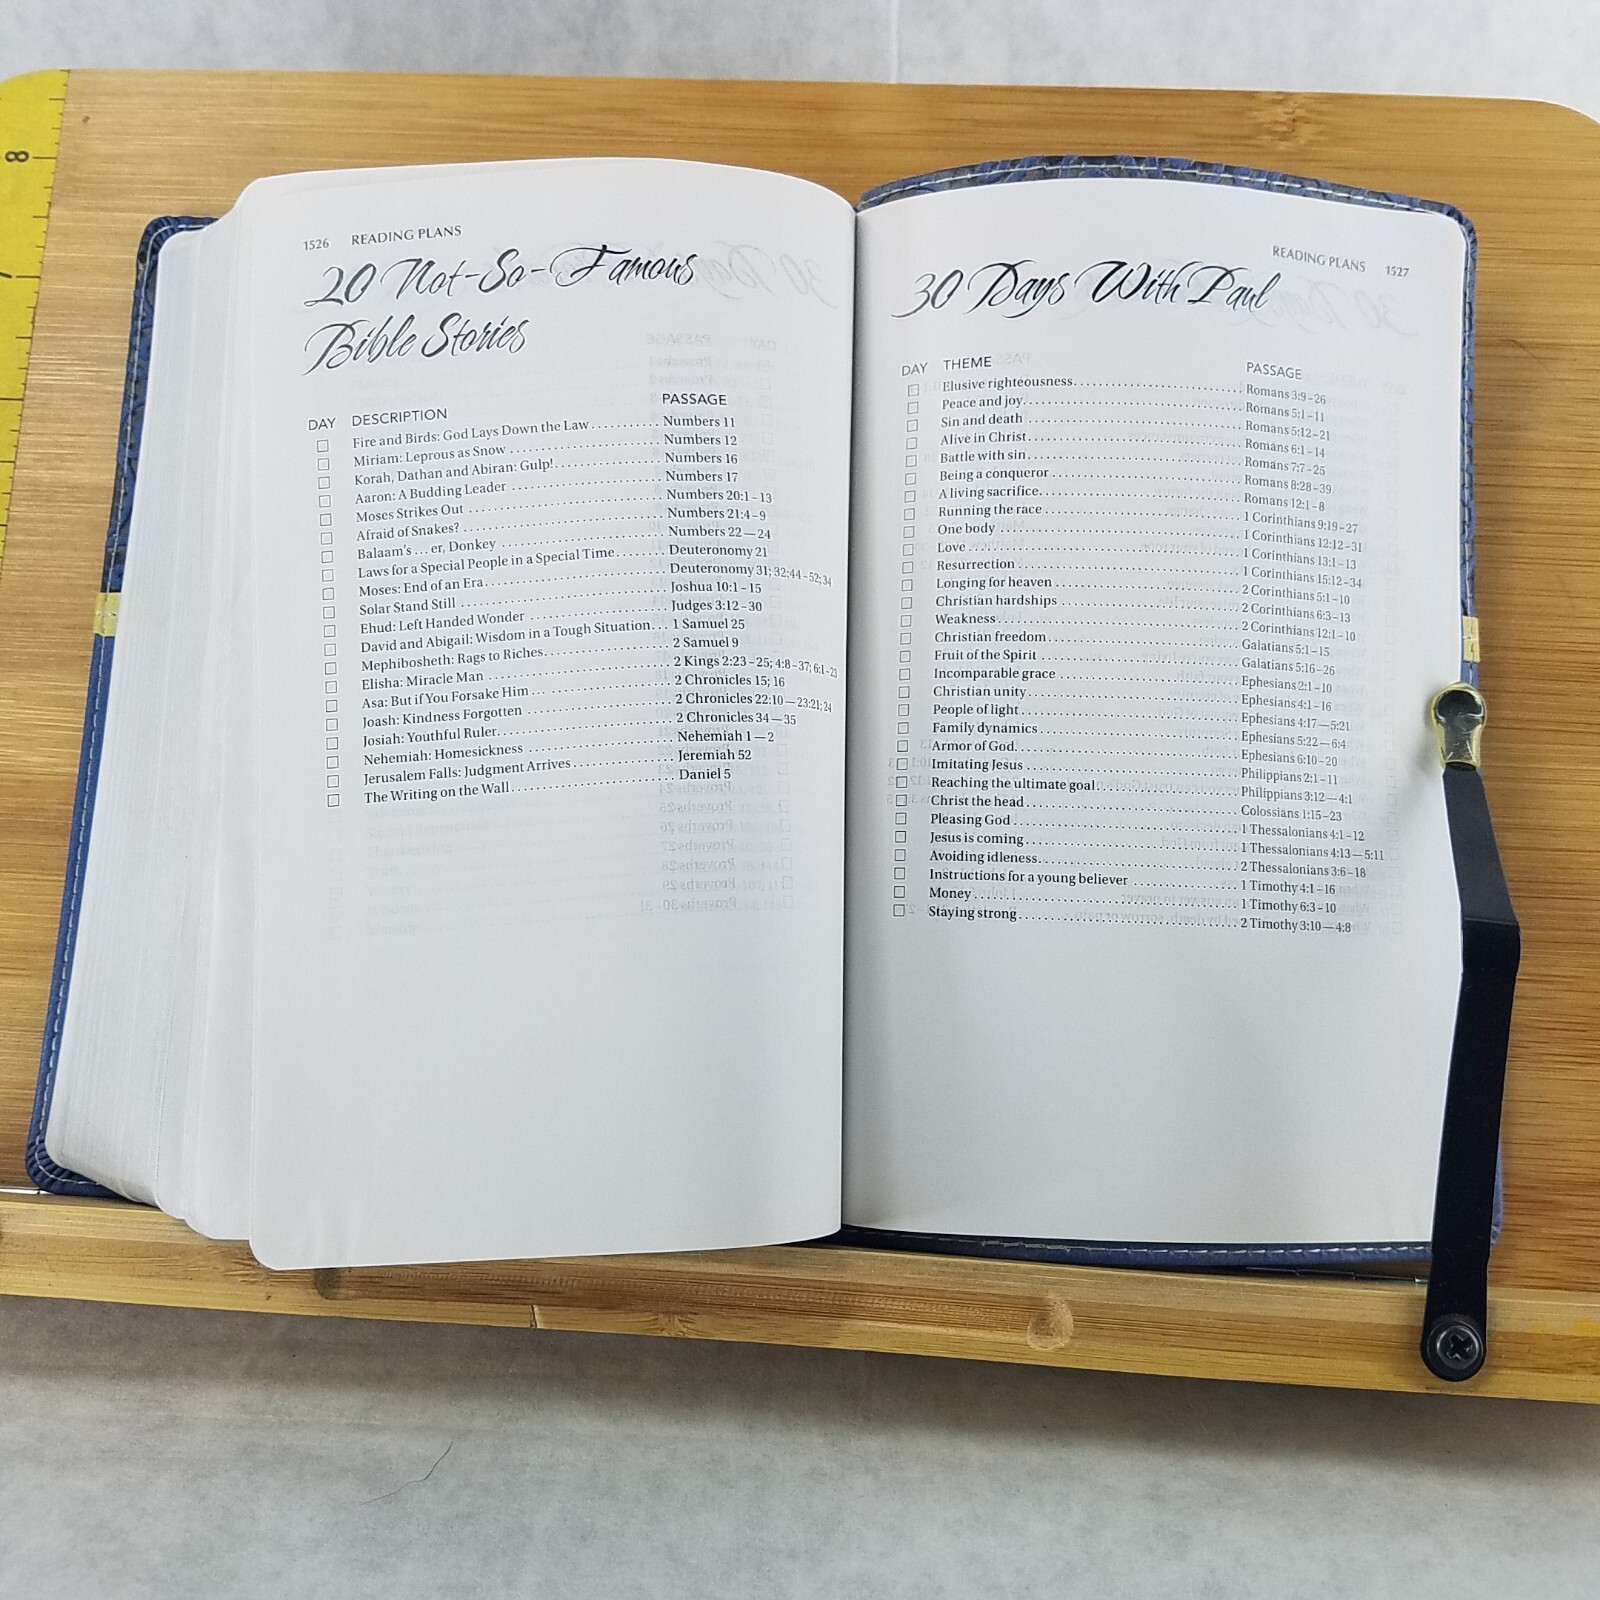 8
7
1526 READING PLANS
20 Not-So-Famous
Bible Stories
DAY DESCRIPTION PASSAGE
Fire and Birds: God Lays Down the Law Numbers 11
Miriam: Leprous as Snow Numbers 12
Korah, Dathan and Abiran: Gulp! Numbers 16
Aaron: A Budding Leader Numbers 17
Moses Strikes Out Numbers 20:1–13
Afraid of Snakes? Numbers 21:4–9
Balaam's ... er, Donkey Numbers 22—24
Laws for a Special People in a Special Time Deuteronomy 21
Moses: End of an Era Deuteronomy 31; 32:44–52; 34
Solar Stand Still Joshua 10:1–15
Ehud: Left Handed Wonder Judges 3:12–30
David and Abigail: Wisdom in a Tough Situation 1 Samuel 25
Mephibosheth: Rags to Riches 2 Samuel 9
Elisha: Miracle Man 2 Kings 2:23–25; 4:8–37; 6:1–23
Asa: But if You Forsake Him 2 Chronicles 15; 16
Joash: Kindness Forgotten 2 Chronicles 22:10—23:21; 24
Josiah: Youthful Ruler 2 Chronicles 34—35
Nehemiah: Homesickness Nehemiah 1—2
Jerusalem Falls: Judgment Arrives Jeremiah 52
The Writing on the Wall Daniel 5
READING PLANS 1527
30 Days With Paul
DAY THEME PASSAGE
Elusive righteousness Romans 3:9–26
Peace and joy Romans 5:1–11
Sin and death Romans 5:12–21
Alive in Christ Romans 6:1–14
Battle with sin Romans 7:7–25
Being a conqueror Romans 8:28–39
A living sacrifice Romans 12:1–8
Running the race 1 Corinthians 9:19–27
One body 1 Corinthians 12:12–31
Love 1 Corinthians 13:1–13
Resurrection 1 Corinthians 15:12–34
Longing for heaven 2 Corinthians 5:1–10
Christian hardships 2 Corinthians 6:3–13
Weakness 2 Corinthians 12:1–10
Christian freedom Galatians 5:1–15
Fruit of the Spirit Galatians 5:16–26
Incomparable grace Ephesians 2:1–10
Christian unity Ephesians 4:1–16
People of light Ephesians 4:17—5:21
Family dynamics Ephesians 5:22—6:4
Armor of God Ephesians 6:10–20
Imitating Jesus Philippians 2:1–11
Reaching the ultimate goal Philippians 3:12—4:1
Christ the head Colossians 1:15–23
Pleasing God 1 Thessalonians 4:1–12
Jesus is coming 1 Thessalonians 4:13—5:11
Avoiding idleness 2 Thessalonians 3:6–18
Instructions for a young believer 1 Timothy 4:1–16
Money 1 Timothy 6:3–10
Staying strong 2 Timothy 3:10—4:8